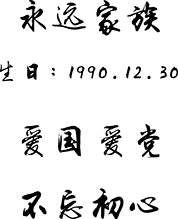 永远家族
生日:1990.12.30
爱国爱党
不忘初心